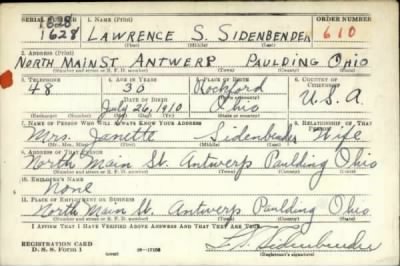 SERIAL NUMBER 1. NAME (Print) ORDER NUMBER
1628
1628 LAWRENCE S. SIDENBENDER 610
(First) (Middle) (Last)
2. ADDRESS (Print)
NORTH MAIN ST ANTWERP PAULDING OHIO
(Number and street or R. F. D. number) (Town) (County) (State)
3. TELEPHONE 4. AGE IN YEARS 5. PLACE OF BIRTH 6. COUNTRY OF CITIZENSHIP
48 30 Rockford
DATE OF BIRTH (Town or county)
July 26, 1910 Ohio U.S.A.
(Exchange) (Number) (Mo.) (Day) (Yr.) (State or country)
7. NAME OF PERSON WHO WILL ALWAYS KNOW YOUR ADDRESS 8. RELATIONSHIP OF THAT PERSON
Mrs. Janette Sidenbender Wife
(Mr., Mrs., Miss) (First) (Middle) (Last)
9. ADDRESS OF THAT PERSON
North Main St. Antwerp Paulding Ohio
(Number and street or R. F. D. number) (Town) (County) (State)
10. EMPLOYER'S NAME
None
11. PLACE OF EMPLOYMENT OR BUSINESS
North Main St. Antwerp Paulding Ohio
(Number and street or R. F. D. number) (Town) (County) (State)
I AFFIRM THAT I HAVE VERIFIED ABOVE ANSWERS AND THAT THEY ARE TRUE.
REGISTRATION CARD
D. S. S. Form 1 Sidenbender
(Registrant's signature)